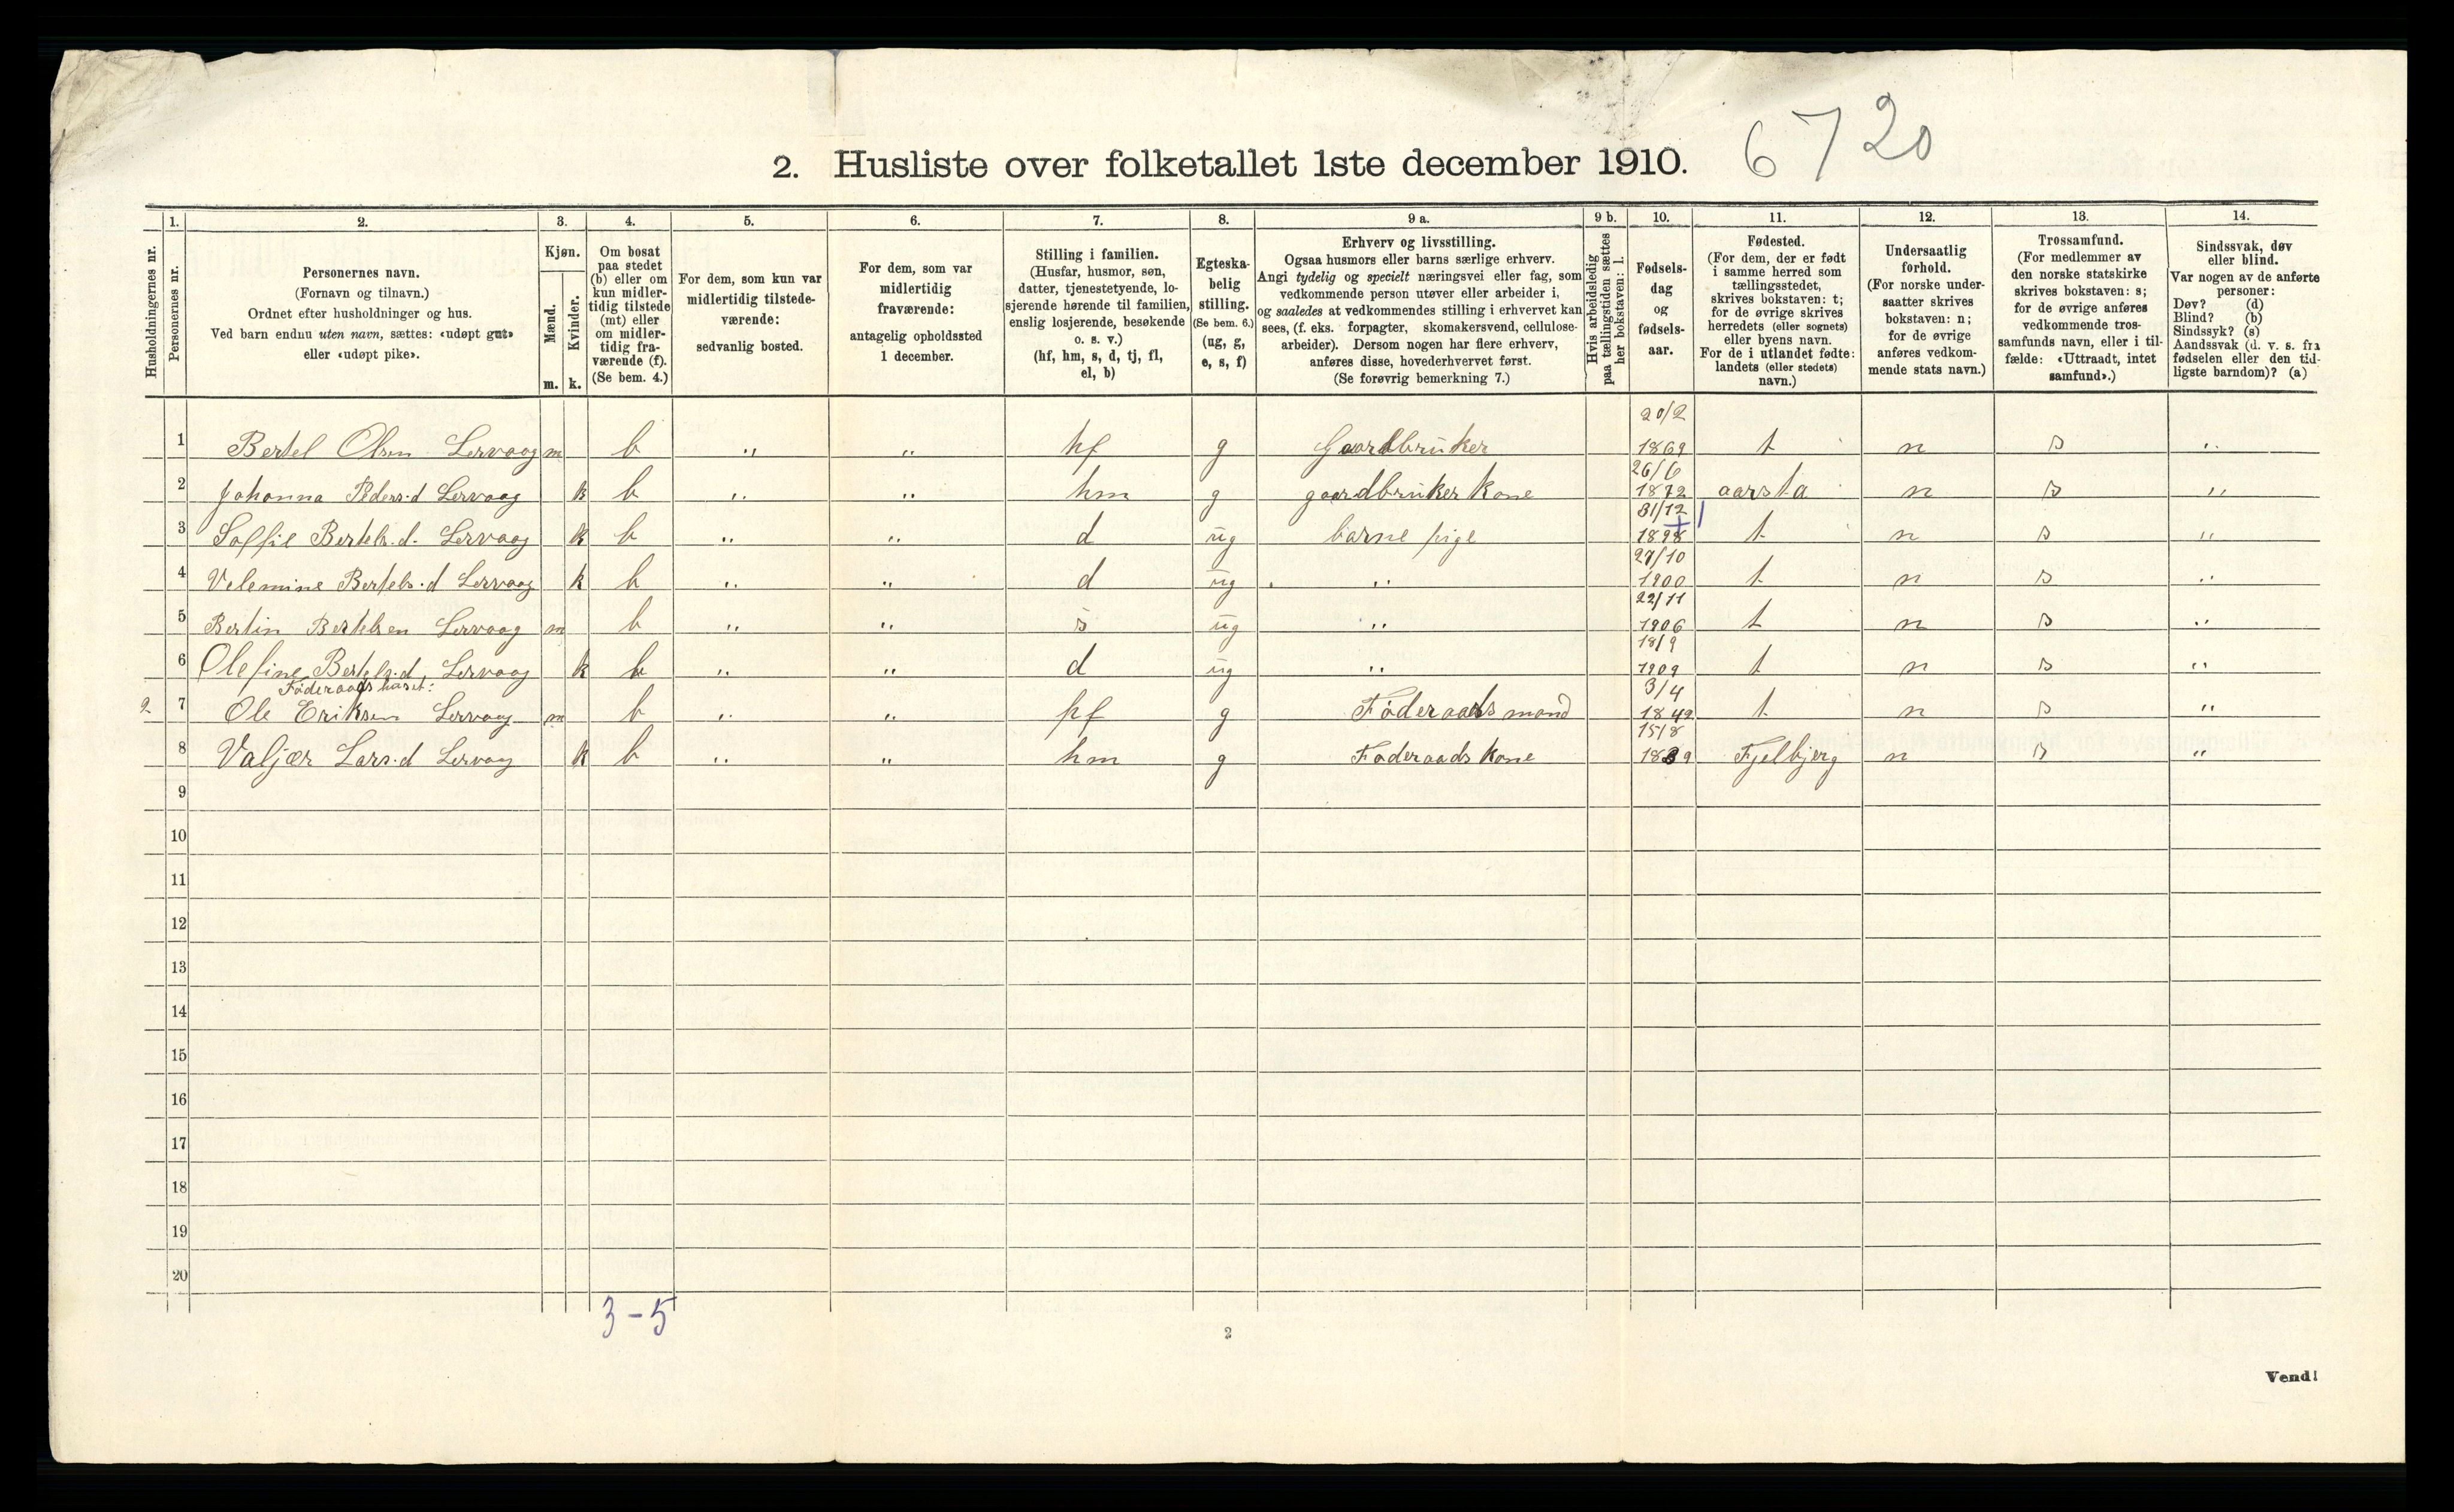 2. Husliste over folketallet 1ste december 1910. 6720
Husholdningernes nr.
1.
Personernes nr.
2.
Personernes navn.
(Fornavn og tilnavn.)
Ordnet efter husholdninger og hus.
Ved barn endnu uten navn, sættes: «udøpt gut»
eller «udøpt pike».
3.
Kjøn.
Mænd.
m.
Kvinder.
k.
4.
Om bosat
paa stedet
(b) eller om
kun midler-
tidig tilstede
(mt) eller
om midler-
tidig fra-
værende (f).
(Se bem. 4.)
5.
For dem, som kun var
midlertidig tilstede-
værende:
sedvanlig bosted.
6.
For dem, som var
midlertidig
fraværende:
antagelig opholdssted
1 december.
7.
Stilling i familien.
(Husfar, husmor, søn,
datter, tjenestetyende, lo-
sjerende hørende til familien,
enslig losjerende, besøkende
o. s. v.)
(hf, hm, s, d, tj, fl,
el, b)
8.
Egteska-
belig
stilling.
(Se bem. 6.)
(ug, g,
e, s, f)
9 a.
Erhverv og livsstilling.
Ogsaa husmors eller barns særlige erhverv.
Angi tydelig og specielt næringsvei eller fag, som
vedkommende person utøver eller arbeider i,
og saaledes at vedkommendes stilling i erhvervet kan
sees, (f. eks. forpagter, skomakersvend, cellulose-
arbeider). Dersom nogen har flere erhverv,
anføres disse, hovederhvervet først.
(Se forøvrig bemerkning 7.)
9 b.
Hvis arbeidsledig
paa tællingstiden sættes
her bokstaven: l.
10.
Fødsels-
dag
og
fødsels-
aar.
11.
Fødested.
(For dem, der er født
i samme herred som
tællingsstedet,
skrives bokstaven: t;
for de øvrige skrives
herredets (eller sognets)
eller byens navn.
For de i utlandet fødte:
landets (eller stedets)
navn.)
12.
Undersaatlig
forhold.
(For norske under-
saatter skrives
bokstaven: n;
for de øvrige
anføres vedkom-
mende stats navn.)
13.
Trossamfund.
(For medlemmer av
den norske statskirke
skrives bokstaven: s;
for de øvrige anføres
vedkommende tros-
samfunds navn, eller i til-
fælde: «Uttraadt, intet
samfund».)
14.
Sindssvak, døv
eller blind.
Var nogen av de anførte
personer:
Døv? (d)
Blind? (b)
Sindssyk? (s)
Aandssvak (d. v. s. fra
fødselen eller den tid-
ligste barndom)? (a)
20/2
1 Bertel Olsen Lervaag m b " " hf g Gaardbruker 1869 t n s "
26/6
2 Johanna Peders.d Lervaag k b " " hm g gaardbruker kone 1872 aarsta n s "
31/12
3 Soffie Bertels.d. Lervaag k b " " d ug barne pige 1898 t n s "
29/10
4 Velemine Bertels.d Lervaag k b " " d ug " 1900 t n s "
22/11
5 Bertin Bertelsen Lervaag m b " " s ug " 1906 t n s "
18/9
6 Olefine Bertels.d, Lervaag k b " " d ug " 1909 t n s "
Føderaads huset:
3/4
2 7 Ole Eriksen Lervaag m b " " hf g Føderaads mand 1842 t n s "
15/8
8 Valjær Lars.d Lervaag k b " " hm g Føderaads kone 1839 Fjelbjerg n s "
9
10
11
12
13
14
15
16
17
18
19
20
3-5
2
Vend!